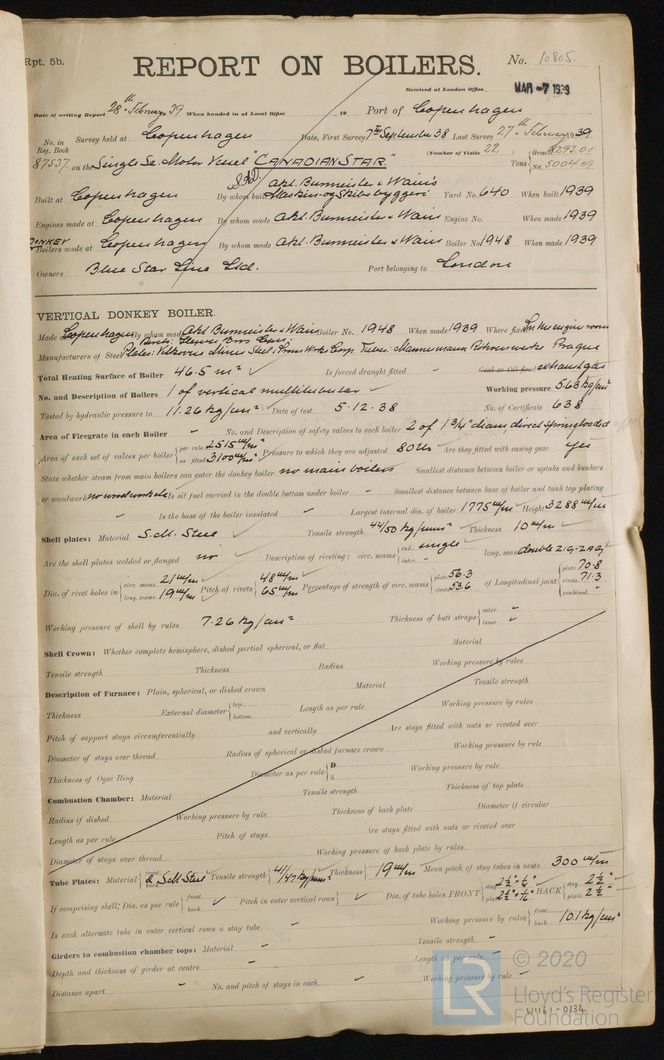 Rpt. 5b.
REPORT ON BOILERS.
No. 10805.
Received at London Office MAR -7 1939
Date of writing Report 28th February 1939 When handed in at Local Office 19 Port of Copenhagen
No. in Reg. Book Survey held at Copenhagen Date, First Survey 7th September 38 Last Survey 27th February 1939
(Number of Visits 22)
87537 on the Single Sc. Motor Vessel "CANADIAN STAR" Tons Gross 8293.01 Net 5004.09
Built at Copenhagen By whom built Akt. Burmeister & Wain's Maskin- og Skibsbyggeri Yard No. 640 When built 1939
Engines made at Copenhagen By whom made Akt. Burmeister & Wain Engine No. When made 1939
DONKEY Boilers made at Copenhagen By whom made Akt. Burmeister & Wain Boiler No. 1948 When made 1939
Owners Blue Star Line Ltd. Port belonging to London
VERTICAL DONKEY BOILER.
Made at Copenhagen By whom made Akt. Burmeister & Wain Boiler No. 1948 When made 1939 Where fixed In the engine room
Manufacturers of Steel Plates: Tubes: Mannesmann Prague
Total Heating Surface of Boiler 46.5 m² Is forced draught fitted - Coal or Oil fired exhaust gas
No. and Description of Boilers 1 of vertical multitubular Working pressure 5.63 kg/cm²
Tested by hydraulic pressure to 11.26 kg/cm² Date of test 5.12.38 No. of Certificate 638
Area of Firegrate in each Boiler - No. and Description of safety valves to each boiler 2 of 1 3/4" diam direct spring loaded
Area of each set of valves per boiler per rule 2515 m/m² as fitted 3100 m/m² Pressure to which they are adjusted 80 lbs Are they fitted with easing gear yes
State whether steam from main boilers can enter the donkey boiler no main boilers Smallest distance between boiler or uptake and bunkers
or woodwork no woodwork etc Is oil fuel carried in the double bottom under boiler - Smallest distance between base of boiler and tank top plating
- Is the base of the boiler insulated - Largest internal dia. of boiler 1775 m/m Height 3288 m/m
Shell plates: Material S.M. Steel Tensile strength 44/50 kg/mm² Thickness 10 m/m
Are the shell plates welded or flanged no Description of riveting: circ. seams end single inter. - long. seams double zig-zag
Dia. of rivet holes in circ. seams 21 m/m long. seams 19 m/m Pitch of rivets 48 m/m 65 m/m Percentage of strength of circ. seams plate 56.3 rivets 53.6 of Longitudinal joint plate 70.8 rivets 71.3 combined -
Working pressure of shell by rules 7.26 kg/cm² Thickness of butt straps outer - inner -
Shell Crown: Whether complete hemisphere, dished partial spherical, or flat Material
Tensile strength Thickness Radius Working pressure by rules
Description of Furnace: Plain, spherical, or dished crown Material Tensile strength
Thickness External diameter top bottom Length as per rule Working pressure by rules
Pitch of support stays circumferentially and vertically Are stays fitted with nuts or riveted over
Diameter of stays over thread Radius of spherical or dished furnace crown Working pressure by rule
Thickness of Ogee Ring Diameter as per rule D d Working pressure by rule
Combustion Chamber: Material Tensile strength Thickness of top plate
Radius if dished Working pressure by rule Thickness of back plate Diameter if circular
Length as per rule Pitch of stays Are stays fitted with nuts or riveted over
Diameter of stays over thread Working pressure of back plate by rules
Tube Plates: Material front back S.M. Steel Tensile strength 41/47 kg/mm² Thickness 19 m/m Mean pitch of stay tubes in nests 300 m/m
If comprising shell, Dia. as per rule front back Pitch in outer vertical rows Dia. of tube holes FRONT stay plain BACK stay 2 1/2" plain 2 1/2"
Is each alternate tube in outer vertical rows a stay tube - Working pressure by rules front back 10.1 kg/cm²
Girders to combustion chamber tops: Material - Tensile strength -
Depth and thickness of girder at centre - Length as per rule -
Distance apart - No. and pitch of stays in each - Working pressure by rule -
© 2020
LR
Lloyd's Register
Foundation
W1161-0134